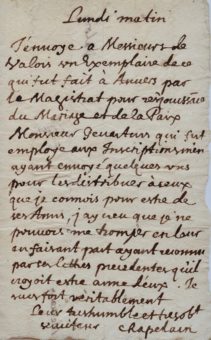 Lundi matin
J'envoye a Messieurs de
Valois vn exemplaire de ce
qui fut fait à Anvers par
le Magistrat pour
du Mariage et de la Paix
Monsieur Gevartius qui fut
employé aux Inscriptions m'en
ayant envoyé quelques vns
pour les distribuer à ceux
que je connois pour estre de
ses Amis, j'ay creu que je ne
pouvois me tromper en leur
en faisant part ayant reconnu
par ses lettres precedentes qu'il
croyoit estre aimé d'eux. Je
suis fort veritablement
Leur treshumble et tresobt
serviteur Chapelain